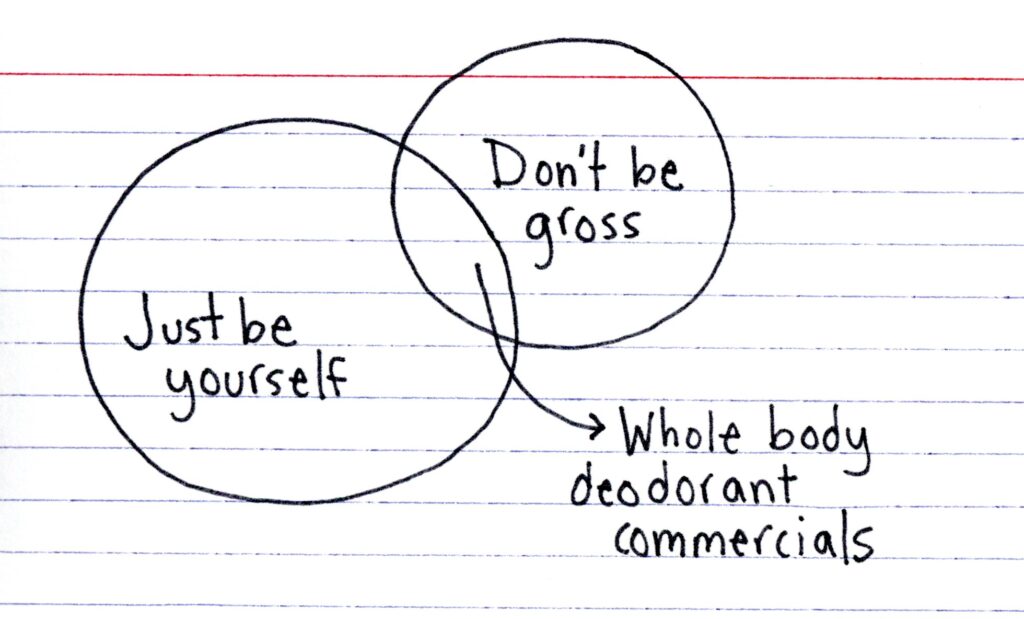 Don't be
gross
Just be
yourself
Whole body
deodorant
commercials